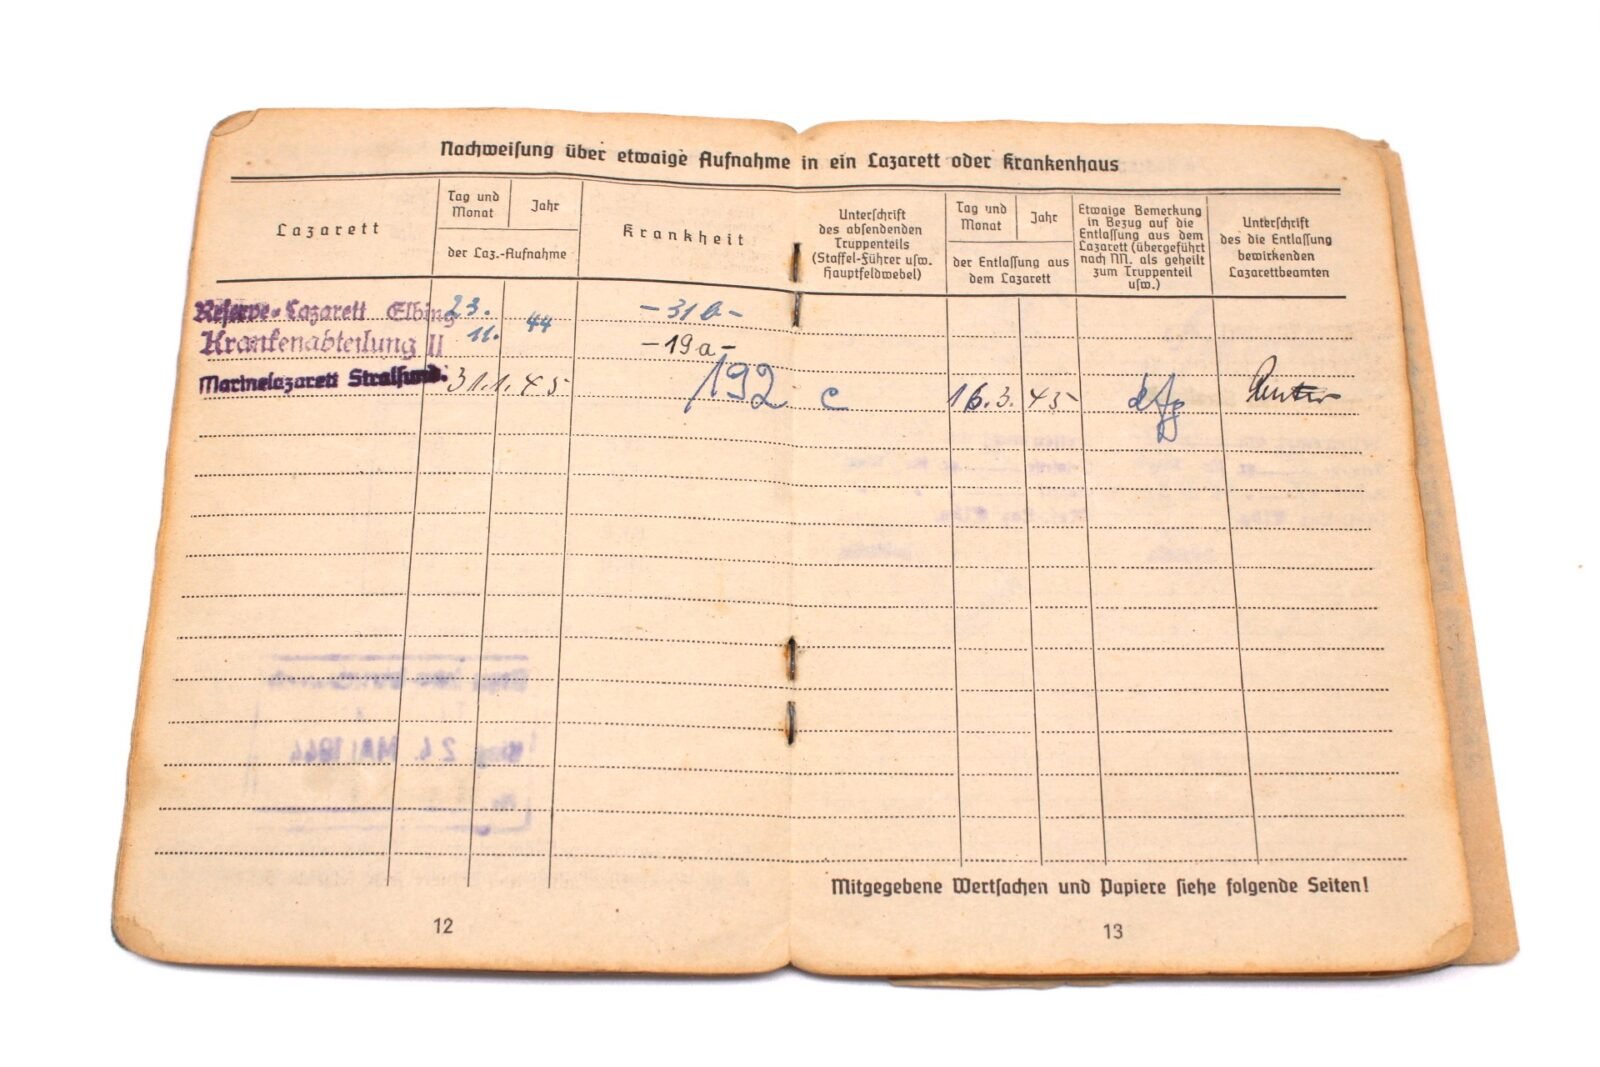 Nachweisung über etwaige Aufnahme in ein Lazarett oder Krankenhaus
Lazarett
Tag und
Monat
Jahr
der Laz.-Aufnahme
Krankheit
Unterschrift
des absendenden
Truppenteils
(Staffel-Führer usw.
Hauptfeldwebel)
Tag und
Monat
Jahr
der Entlassung aus
dem Lazarett
Etwaige Bemerkung
in Bezug auf die
Entlassung aus dem
Lazarett (übergeführt
nach N. als geheilt
zum Truppenteil
usw.)
Unterschrift
des die Entlassung
bewirkenden
Lazarettbeamten
Reserve-Lazarett Elbing 23. 44 -31b-
Krankenabteilung II 11. -19a-
Marinelazarett Stralsund. 31.1.45 192 c 16.3.45
24. MAI 1944
Mitgegebene Wertsachen und Papiere siehe folgende Seiten!
12
13